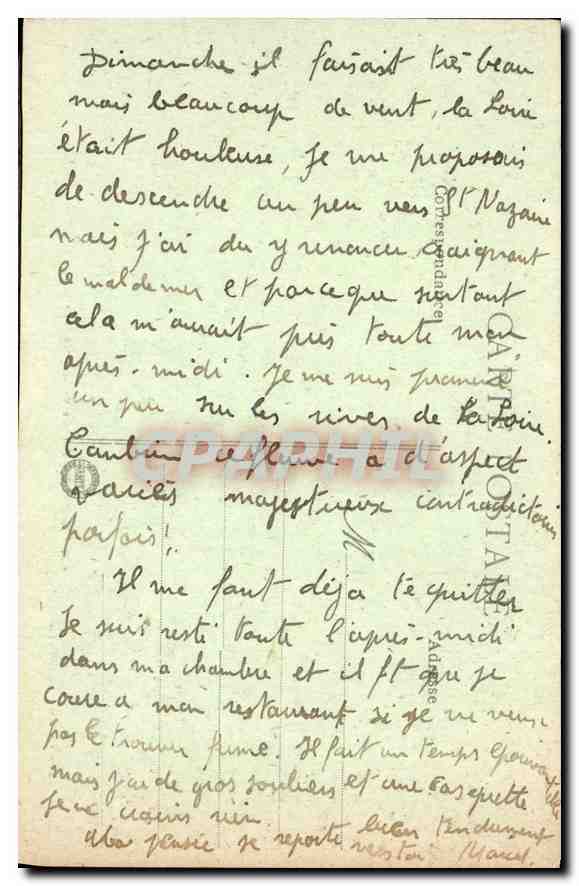 Dimanche il faisait très beau
mais beaucoup de vent, la Loire
était houleuse, je me proposais
de descendre un peu vers St Nazaire
mais j'ai du y renoncer craignant
le mal de mer et parceque surtout
cela m'aurait pris toute mon
après-midi. Je me suis promené
un peu sur les rives de la Loire.
Combien ce fleuve a d'aspect
variés majestueux contradictoires
parfois!
Il me faut déjà te quitter
Je suis resté toute l'après-midi
dans ma chambre et il ft que je
coure a mon restaurant si je ne veux
pas le trouver fermé. Il fait un temps épouvantable
mais j'ai de gros souliers et une casquette
je ne crains rien.
Ma pensée se reporte bien tendrement
vers toi Marcel.
CARTE POSTALE
Correspondance
Adresse
M
CPAPHIL